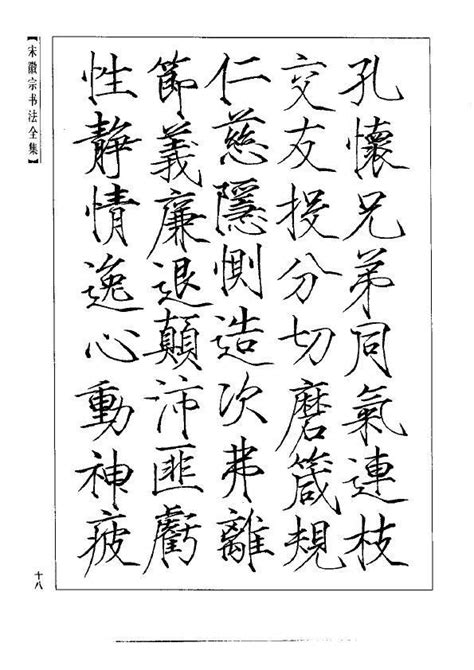 孔懷兄弟同氣連枝
交友投分切磨箴規
仁慈隱惻造次弗離
節義廉退顛沛匪虧
性靜情逸心動神疲
【宋徽宗书法全集】
十八